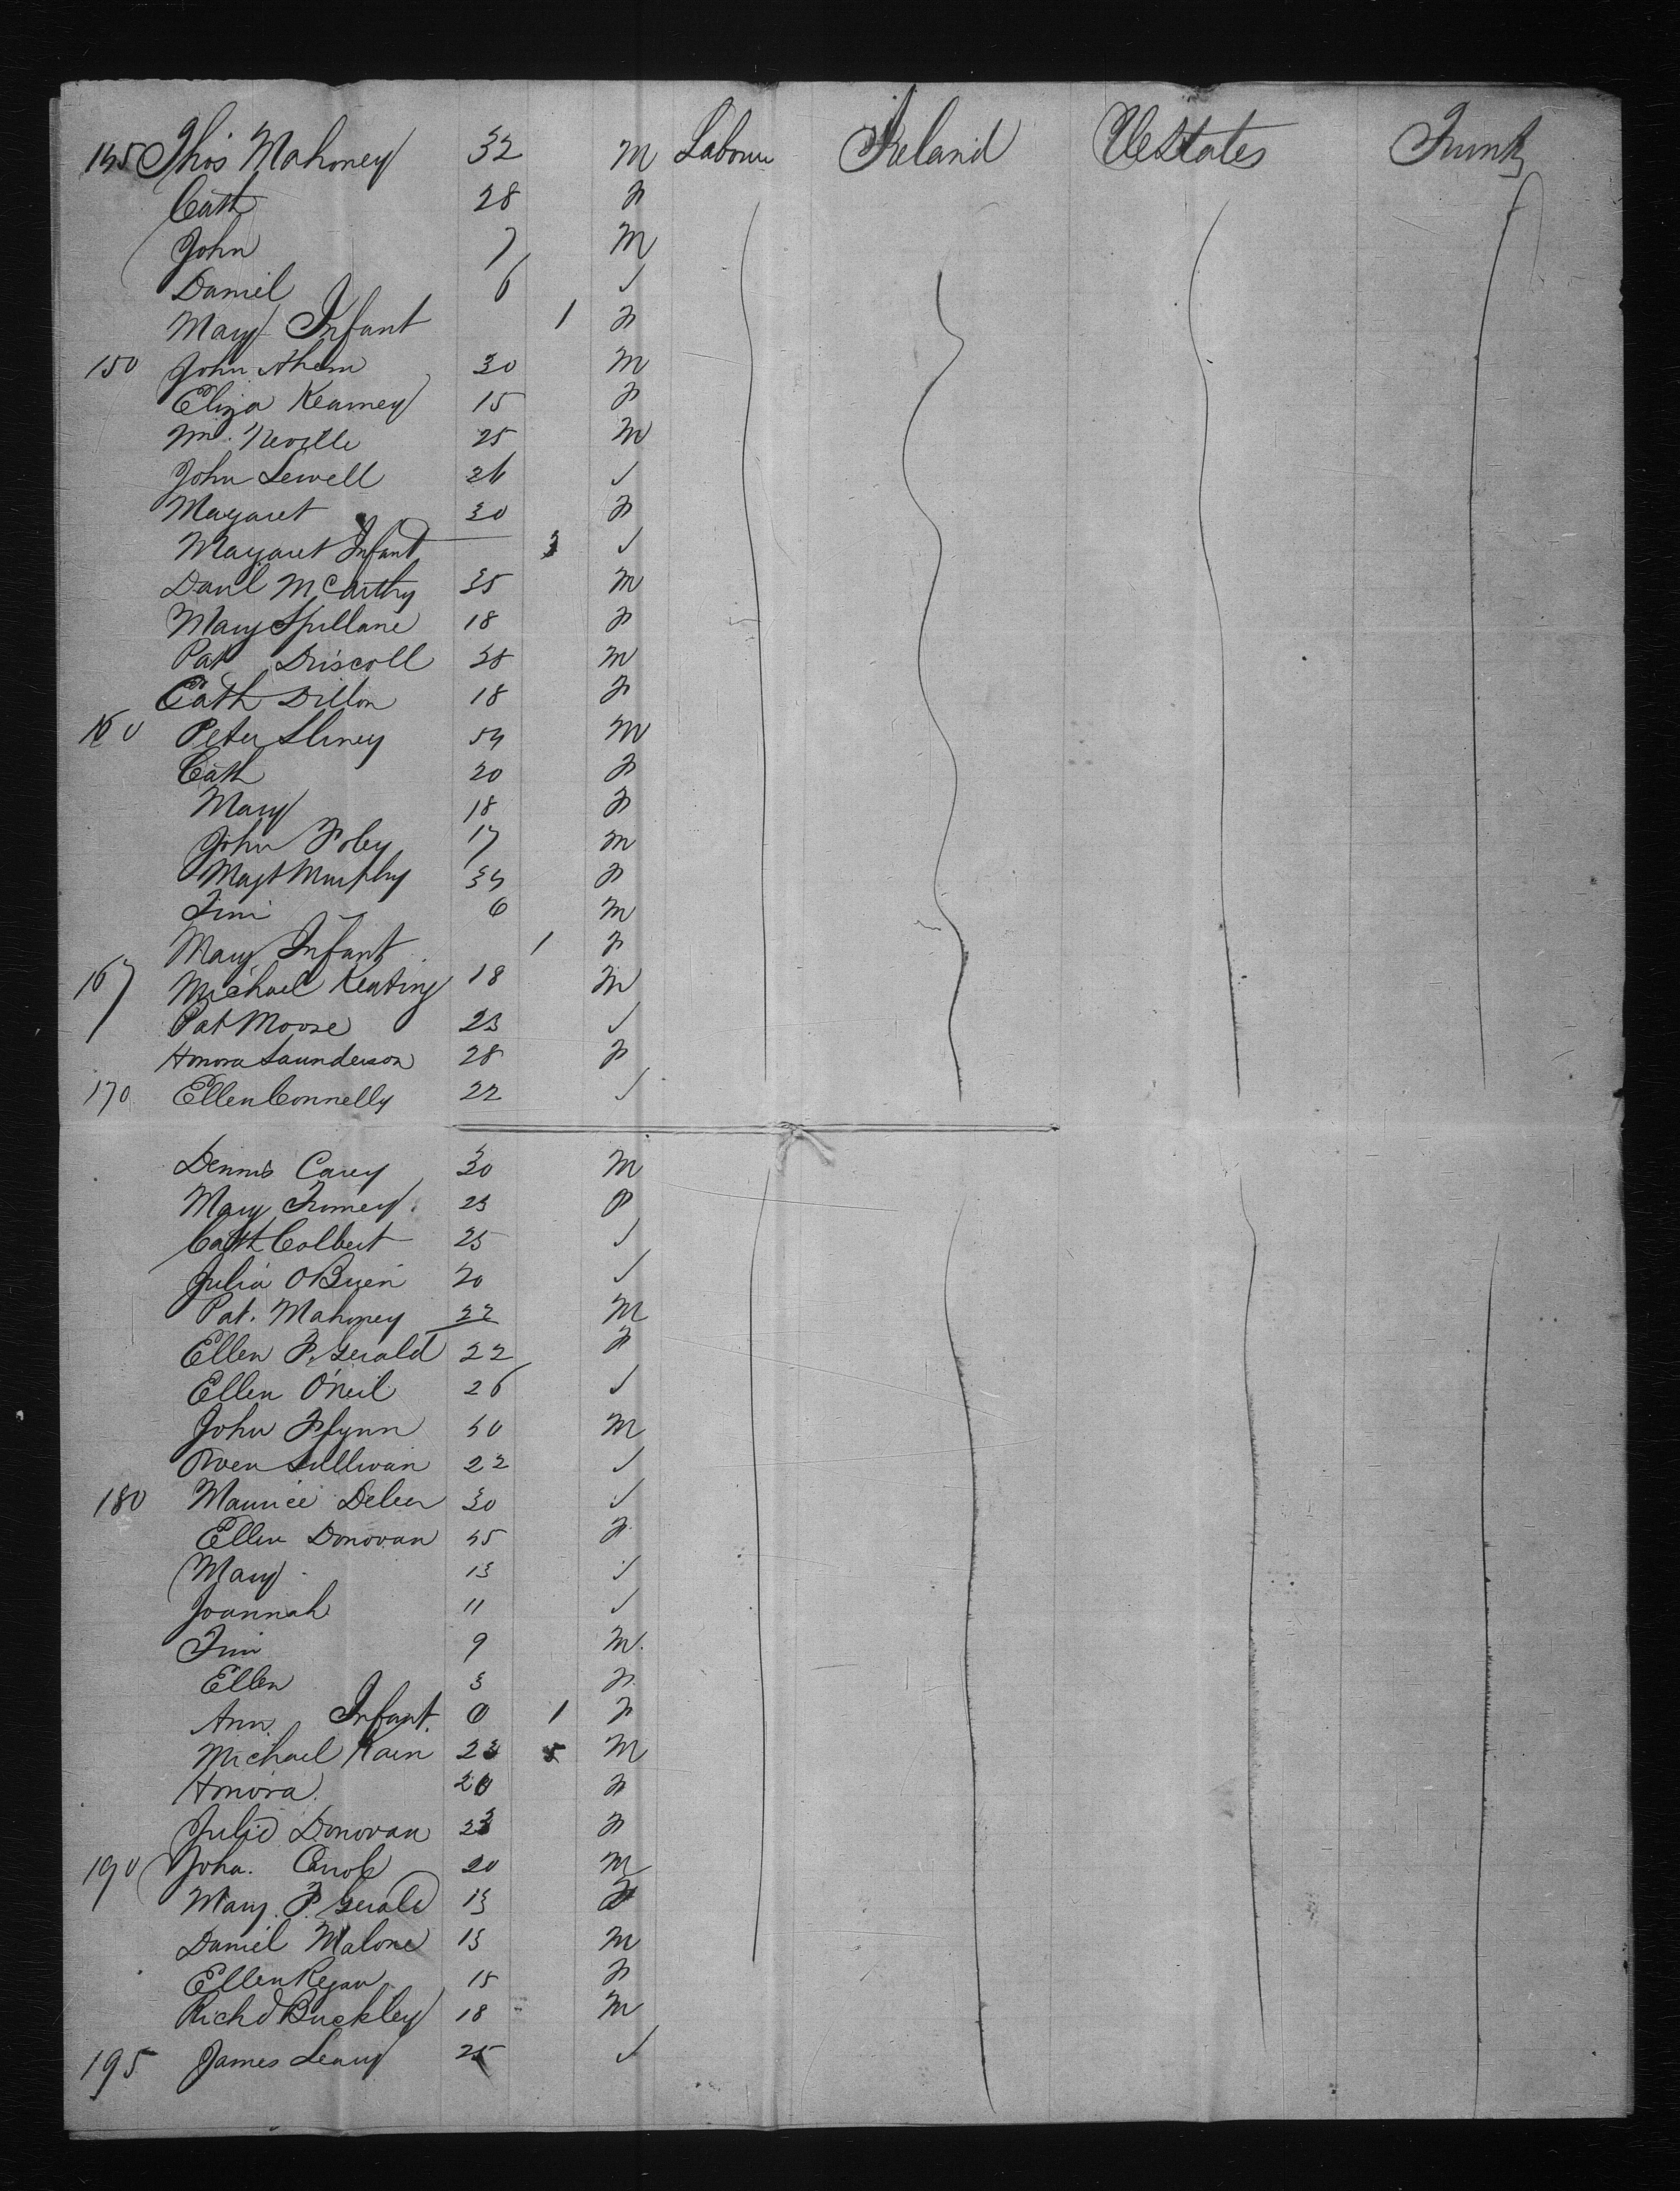 145 Thos Mahoney 32 M Labour Ireland UStates Trunk
Cath 28 F
John 7 M
Daniel 6 ✓
Mary Infant 1 F
150 John Ahern 30 M
Eliza Kearney 15 F
Wm. Neville 25 M
John Sewell 26 ✓
Margaret 30 F
Margaret Infant 3 ✓
Danl McCarthy 35 M
Mary Spillane 18 F
Pat Driscoll 38 M
Cath Dillon 18 F
160 Peter Sliney 54 M
Cath 20 F
Mary 18 F
John Foley 17 M
Magt Murphy 34 F
Tim 6 M
Mary Infant 1 F
167 Michael Keating 18 M
Pat Moore 23 ✓
Honora Saunderson 28 F
170 Ellen Connelly 22 ✓
Dennis Carey 30 M
Mary 23 F
Cath Colbert 25 ✓
Julia OBrien 20 ✓
Pat. Mahoney 22 M
Ellen F.Gerald 22 F
Ellen O'Neil 26 ✓
John Flynn 50 M
Owen Sullivan 22 ✓
180 Maurice 30 ✓
Ellen Donovan 45 F
Mary 13 ✓
Joannah 11 ✓
Tim 9 M.
Ellen 3 F.
Ann Infant. 0 1 F
Michael Kain 23 5 M
Honora. 20 F
Julia Donovan 23 F
190 John. 20 M
Mary. F. Gerald 13 F
Daniel Malone 13 M
Ellen Regan 15 F
Richd Buckley 18 M
195 James Leary 25 ✓